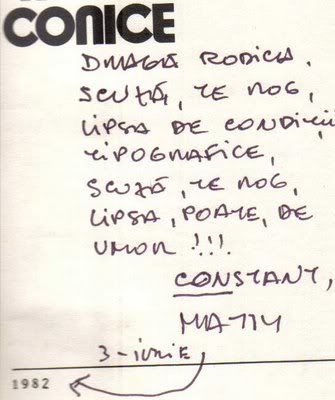 CONICE
DRAGĂ RODICA,
SCUZĂ, TE ROG,
LIPSA DE CONDIȚII
TIPOGRAFICE,
SCUZĂ, TE ROG,
LIPSA, POATE, DE
UMOR !!!
CONSTANT,
MATTY
3-IUNIE
1982